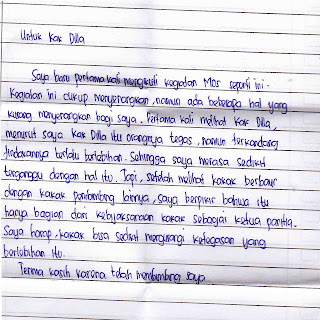 Untuk Kak Dilla
Saya baru pertama kali mengikuti kegiatan MOS seperti ini.
Kegiatan ini cukup menyenangkan, namun ada beberapa hal yang
kurang menyenangkan bagi saya. Pertama kali melihat Kak Dilla,
menurut saya Kak Dilla itu orangnya tegas, namun terkadang
tindakannya terlalu berlebihan. Sehingga saya merasa sedikit
terganggu dengan hal itu. Tapi, setelah melihat kakak berbaur
dengan kakak pembimbing lainnya, saya berpikir bahwa itu
hanya bagian dari kebijaksanaan kakak sebagai ketua panitia.
Saya harap, kakak bisa sedikit mengurangi ketegasan yang
berlebihan itu.
Terima kasih karena telah membimbing saya